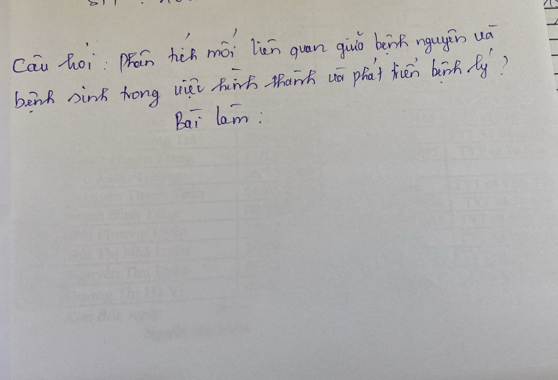 Câu hỏi : phân tích mối liên quan giữa bệnh nguyên và
bệnh sinh trong việc hình thành và phát triển bệnh lý ?
Bài làm :